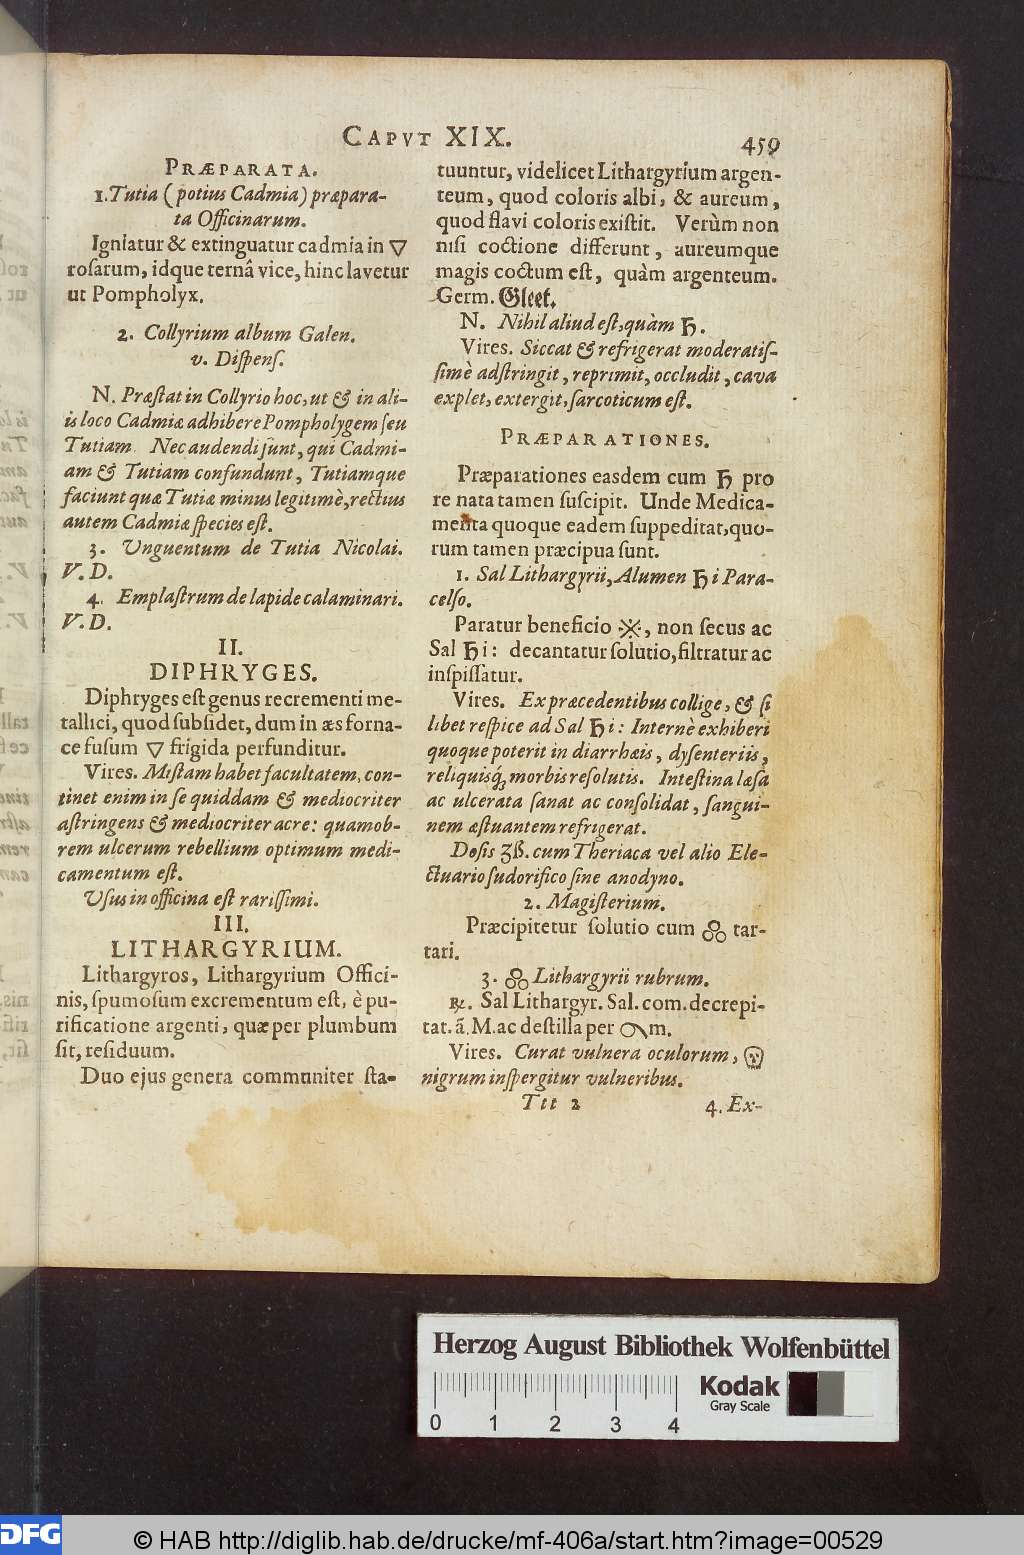 CAPVT XIX. 459
PRÆPARATA.
1. Tutia (potius Cadmia) præpara-
ta Officinarum.
Igniatur & extinguatur cadmia in 🜄
rosarum, idque ternâ vice, hinc lavetur
ut Pompholyx.
2. Collyrium album Galen.
v. Dispens.
N. Præstat in Collyrio hoc, ut & in ali-
is loco Cadmiæ adhibere Pompholygem seu
Tutiam. Nec audendi sunt, qui Cadmi-
am & Tutiam confundunt, Tutiamque
faciunt quæ Tutiæ minus legitimè, rectius
autem Cadmiæ species est.
3. Unguentum de Tutia Nicolai.
V. D.
4. Emplastrum de lapide calaminari.
V. D.
II.
DIPHRYGES.
Diphryges est genus recrementi me-
tallici, quod subsidet, dum in æs forna-
ce fusum 🜄 frigida perfunditur.
Vires. Mistam habet facultatem, con-
tinet enim in se quiddam & mediocriter
astringens & mediocriter acre: quamob-
rem ulcerum rebellium optimum medi-
camentum est.
Usus in officina est rarissimi.
III.
LITHARGYRIUM.
Lithargyros, Lithargyrium Offici-
nis, spumosum excrementum est, è pu-
rificatione argenti, quæ per plumbum
fit, residuum.
Duo ejus genera communiter sta-
tuuntur, videlicet Lithargyrium argen-
teum, quod coloris albi, & aureum,
quod flavi coloris existit. Verùm non
nisi coctione differunt, aureumque
magis coctum est, quàm argenteum.
Germ. Gleet.
N. Nihil aliud est, quàm ♄.
Vires. Siccat & refrigerat moderatis-
simè adstringit, reprimit, occludit, cava
explet, extergit, sarcoticum est.
PRÆPARATIONES.
Præparationes easdem cum ♄ pro
re nata tamen suscipit. Unde Medica-
menta quoque eadem suppeditat, quo-
rum tamen præcipua sunt.
1. Sal Lithargyrii, Alumen ♄i Para-
celso.
Paratur beneficio ※, non secus ac
Sal ♄i: decantatur solutio, filtratur ac
inspissatur.
Vires. Ex præcedentibus collige, & si
libet respice ad Sal ♄i: Internè exhiberi
quoque poterit in diarrhæis, dysenteriis,
reliquisq́; morbis resolutis. Intestina læsa
ac ulcerata sanat ac consolidat, sangui-
nem æstuantem refrigerat.
Dosis ʒß. cum Theriaca vel alio Ele-
ctuario sudorifico sine anodyno.
2. Magisterium.
Præcipitetur solutio cum tar-
tari.
3. Lithargyrii rubrum.
℞. Sal Lithargyr. Sal. com. decrepi-
tat. ã. M. ac destilla per m.
Vires. Curat vulnera oculorum,
nigrum inspergitur vulneribus.
Ttt 2 4. Ex-
Herzog August Bibliothek Wolfenbüttel
Kodak
Gray Scale
0 1 2 3 4
DFG
© HAB http://diglib.hab.de/drucke/mf-406a/start.htm?image=00529